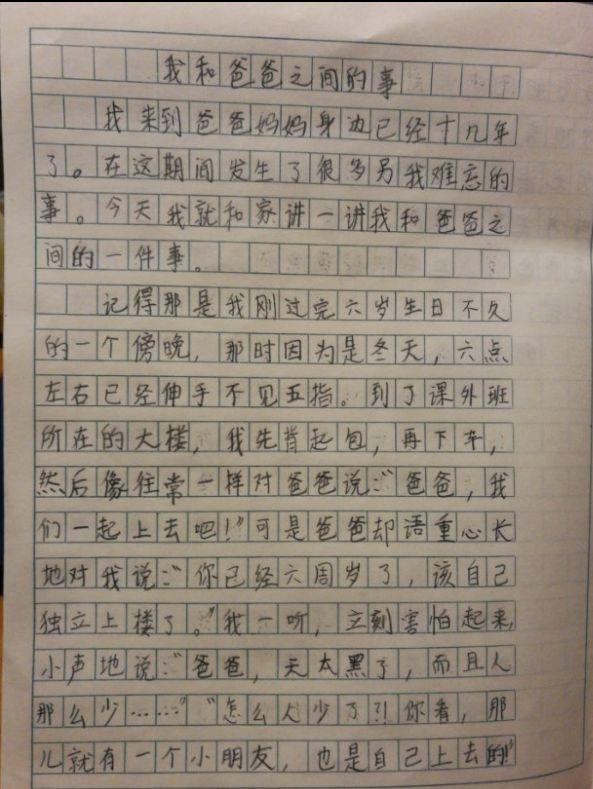 我和爸爸之间的事
我来到爸爸妈妈身边已经十几年
了。在这期间发生了很多另我难忘的
事。今天我就和家讲一讲我和爸爸之
间的一件事。
记得那是我刚过完六岁生日不久
的一个傍晚，那时因为是冬天，六点
左右已经伸手不见五指。到了课外班
所在的大楼，我先背起包，再下车，
然后像往常一样对爸爸说：“爸爸，我
们一起上去吧！”可是爸爸却语重心长
地对我说：“你已经六周岁了，该自己
独立上楼了。”我一听，立刻害怕起来，
小声地说：“爸爸，天太黑了，而且人
那么少……”“怎么人少了？！你看，那
儿就有一个小朋友，也是自己上去的！”